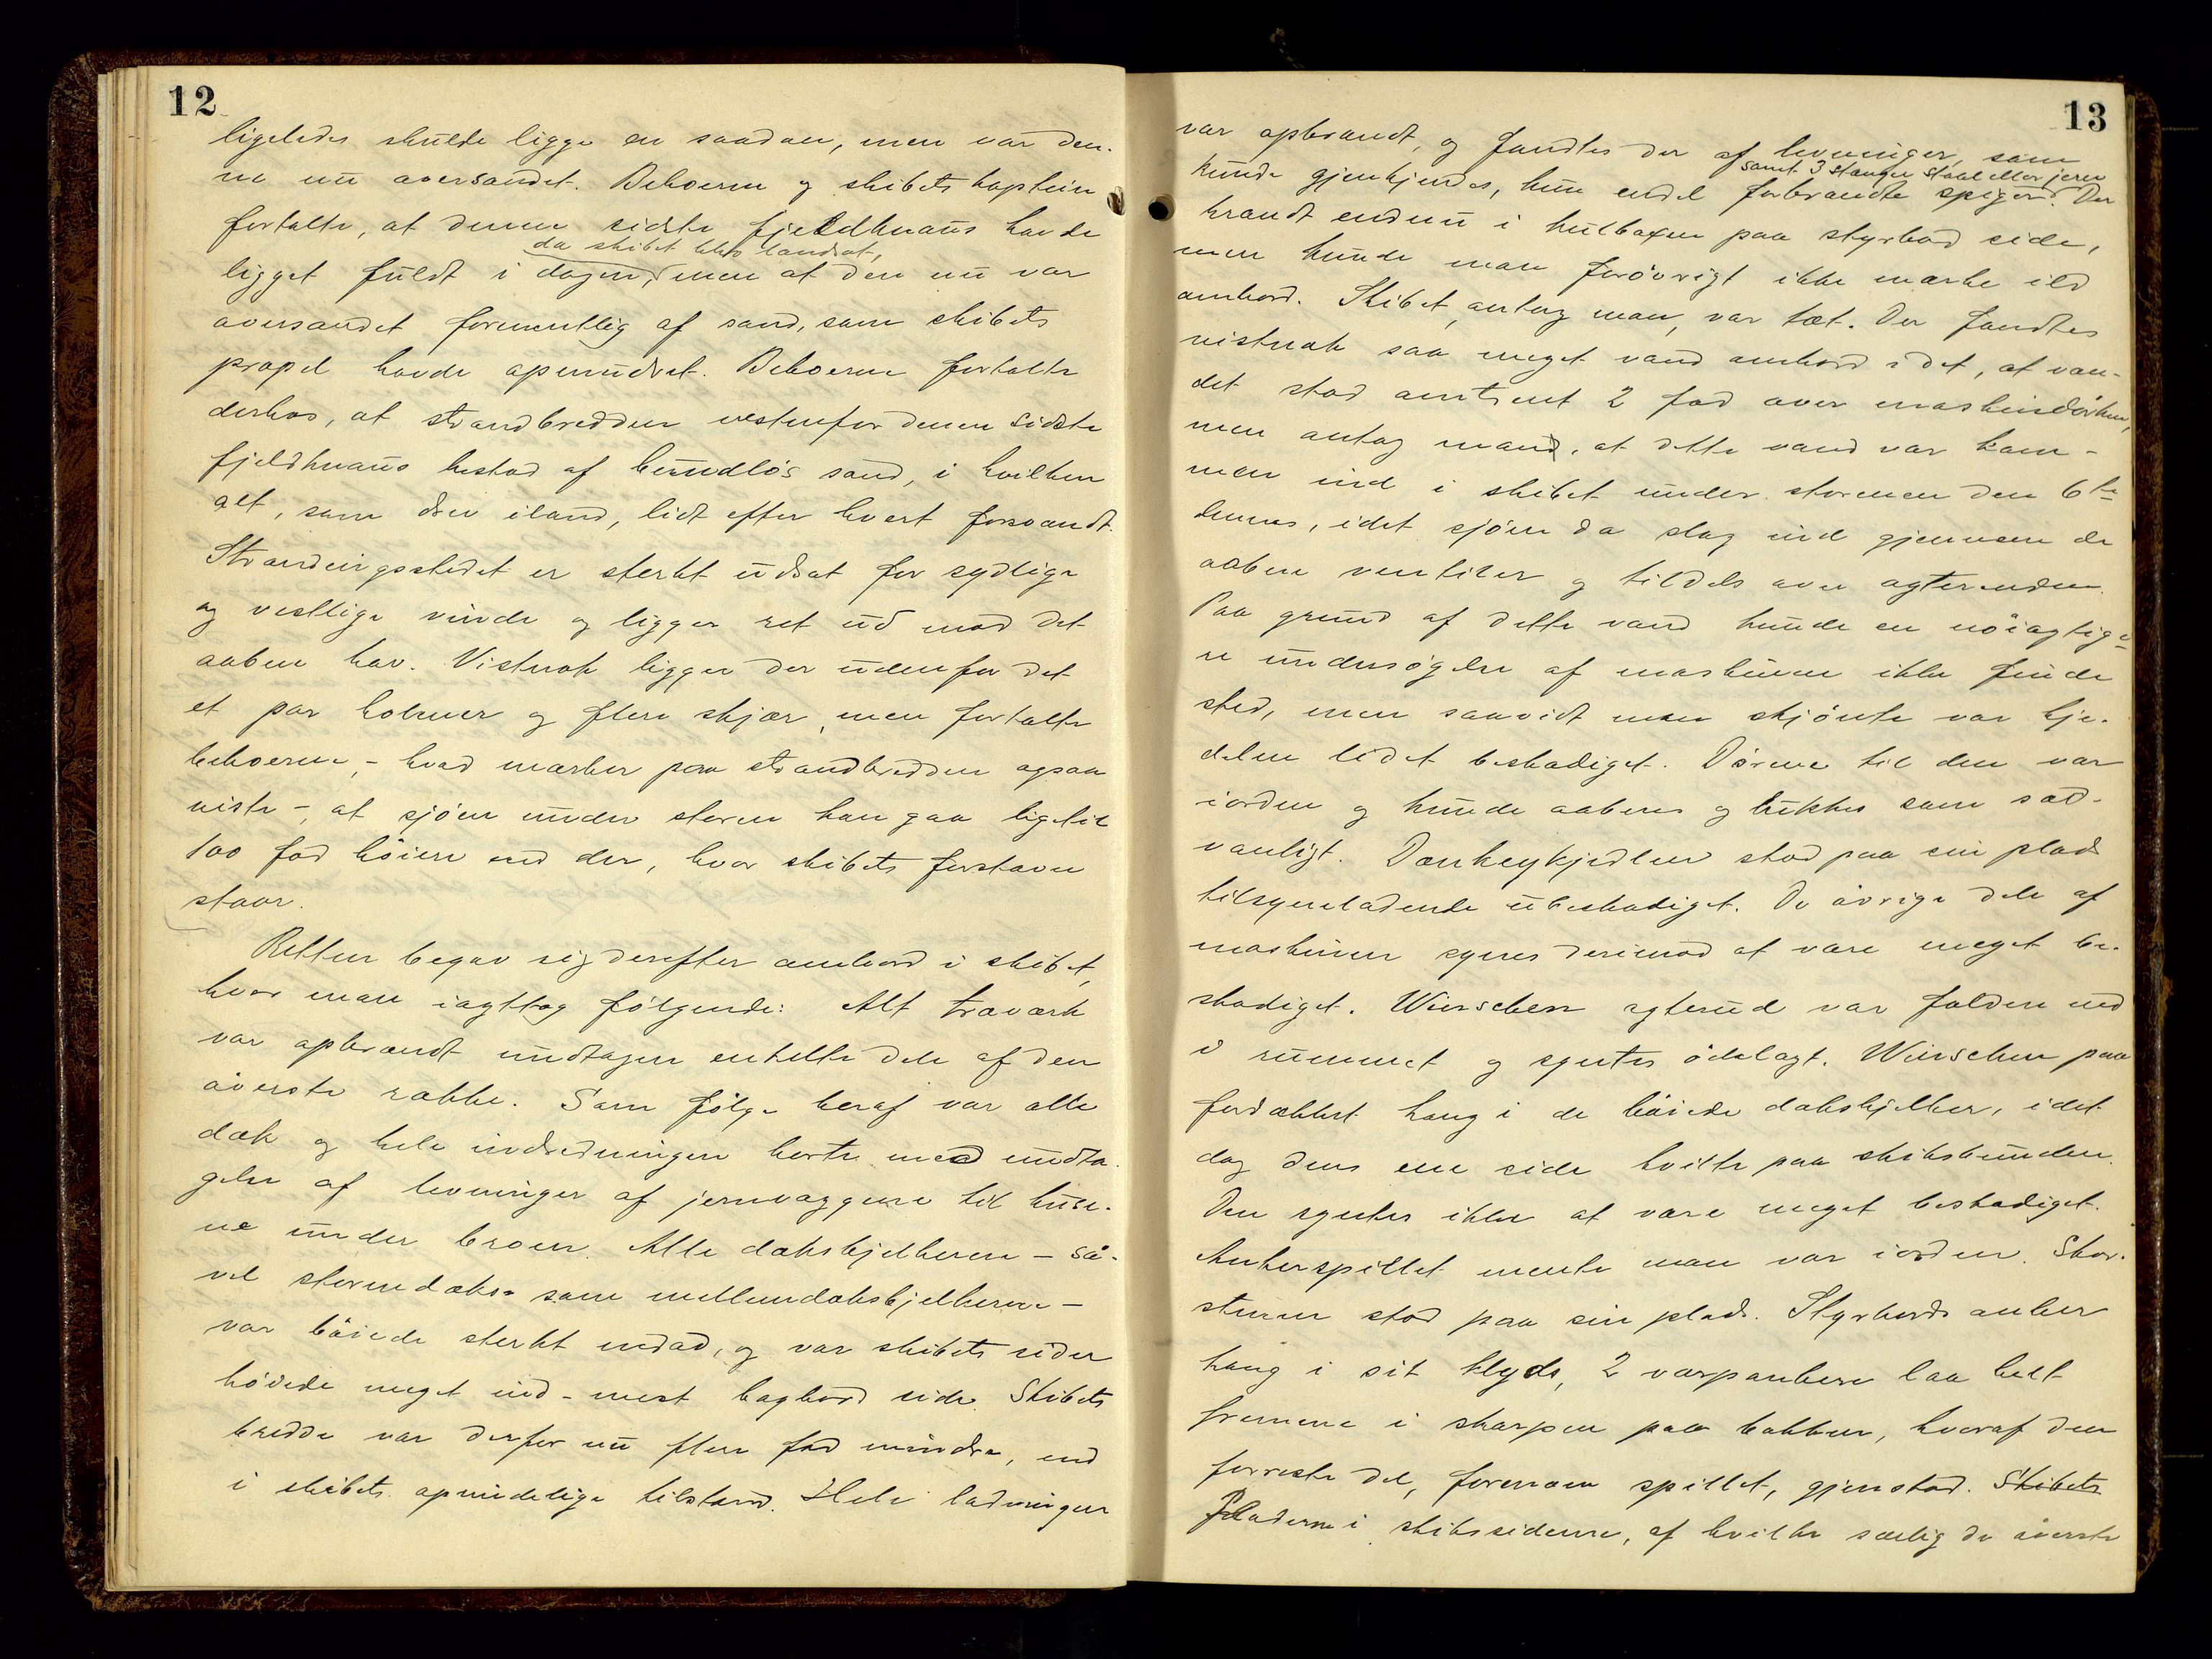 12
ligeledes skulde ligge en saadan, men var den-
ne nu oversandet. Beboerne og skibets kaptein
fortalte, at denne sidste fjeldknaus havde
da skibet blev landsat,
ligget fuldt i dagen, men at den nu var
oversandet formentlig af sand, som skibets
propel havde opmudret. Beboerne fortalte
derhos, at strandbredden vestenfor denne sidste
fjeldknaus bestod af bundløs sand, i hvilken
alt, som drev iland, lidt efter hvert forsvandt.
Strandingsstedet er sterkt udsat for sydlige
og vestlige vinde og ligger ret ud mod det
aaben hav. Vistnok ligger der udenfor det
et par holmer og flere skjær, men fortalte
beboerne, - hvad mærker paa strandbredden ogsaa
viste -, at sjøen under storm kan gaa ligetil
100 fod høiere end der, hvor skibets forstavn
staar.
Retten begav sig derefter ombord i skibet,
hvor man iagttog følgende: Alt træværk
var opbrændt undtagen enkelte dele af den
øverste række. Som følge heraf var alle
dæk og hele indredningen borte med undta-
gelse af levninger af jernvæggene til huse-
ne under broen. Alle dæksbjelkerne - så-
vel stormdæks- som mellemdæksbjelkerne -
var bøiede sterkt nedad, og var skibets sider
bøiede meget ind - mest bagbord side. Skibets
bredde var derfor nu flere fod mindre, end
i skibets oprindelige tilstand. Hele ladningen
13
var opbrændt, og fandtes der af levninger, som
samt 3 stanger staal eller jern
kunde gjenkjendes, kun endel forbrændte spiger. Der
brændt endnu i kulboxen paa styrbord side,
men kunde man forøvrigt ikke mærke ild
ombord. Skibet, antog man, var tæt. Der fandtes
vistnok saa meget vand ombord i det, at van-
det stod omtrent 2 fod over maskindørken,
men antog man, at dette vand var kom-
men ind i skibet under stormen den 6te
dennes, idet sjøen da slog ind gjennem de
aabne ventiler og tildels over agterenden.
Paa grund af dette vand kunde en nøiagtige-
re undersøgelse af maskinen ikke finde
sted, men saavidt man skjønte var kje-
delen lidet beskadiget. Dørene til den var
iorden og kunde aabnes og lukkes som sæd-
vanligt. Donkeykjedlen stod paa sin plads
tilsyneladende ubeskadiget. De øvrige dele af
maskinen synes derimod at være meget be-
skadiget. Winschen agterud var falden ned
i rummet og syntes ødelagt. Winschen paa
fordækket hang i de bøiede dæksbjelker, idet
dog dens ene side hvilte paa skibsbunden.
Den syntes ikke at være meget beskadiget.
Ankerspillet mente man var iorden. Skor-
stenen stod paa sin plads. Styrbords anker
hang i sit klyds, 2 varpankere laa helt
fremme i skarpen paa bakken, hvoraf den
forreste del, forenom spillet, gjenstod. Skibets
Pladerne i skibssiderne, af hvilke særlig de øverste